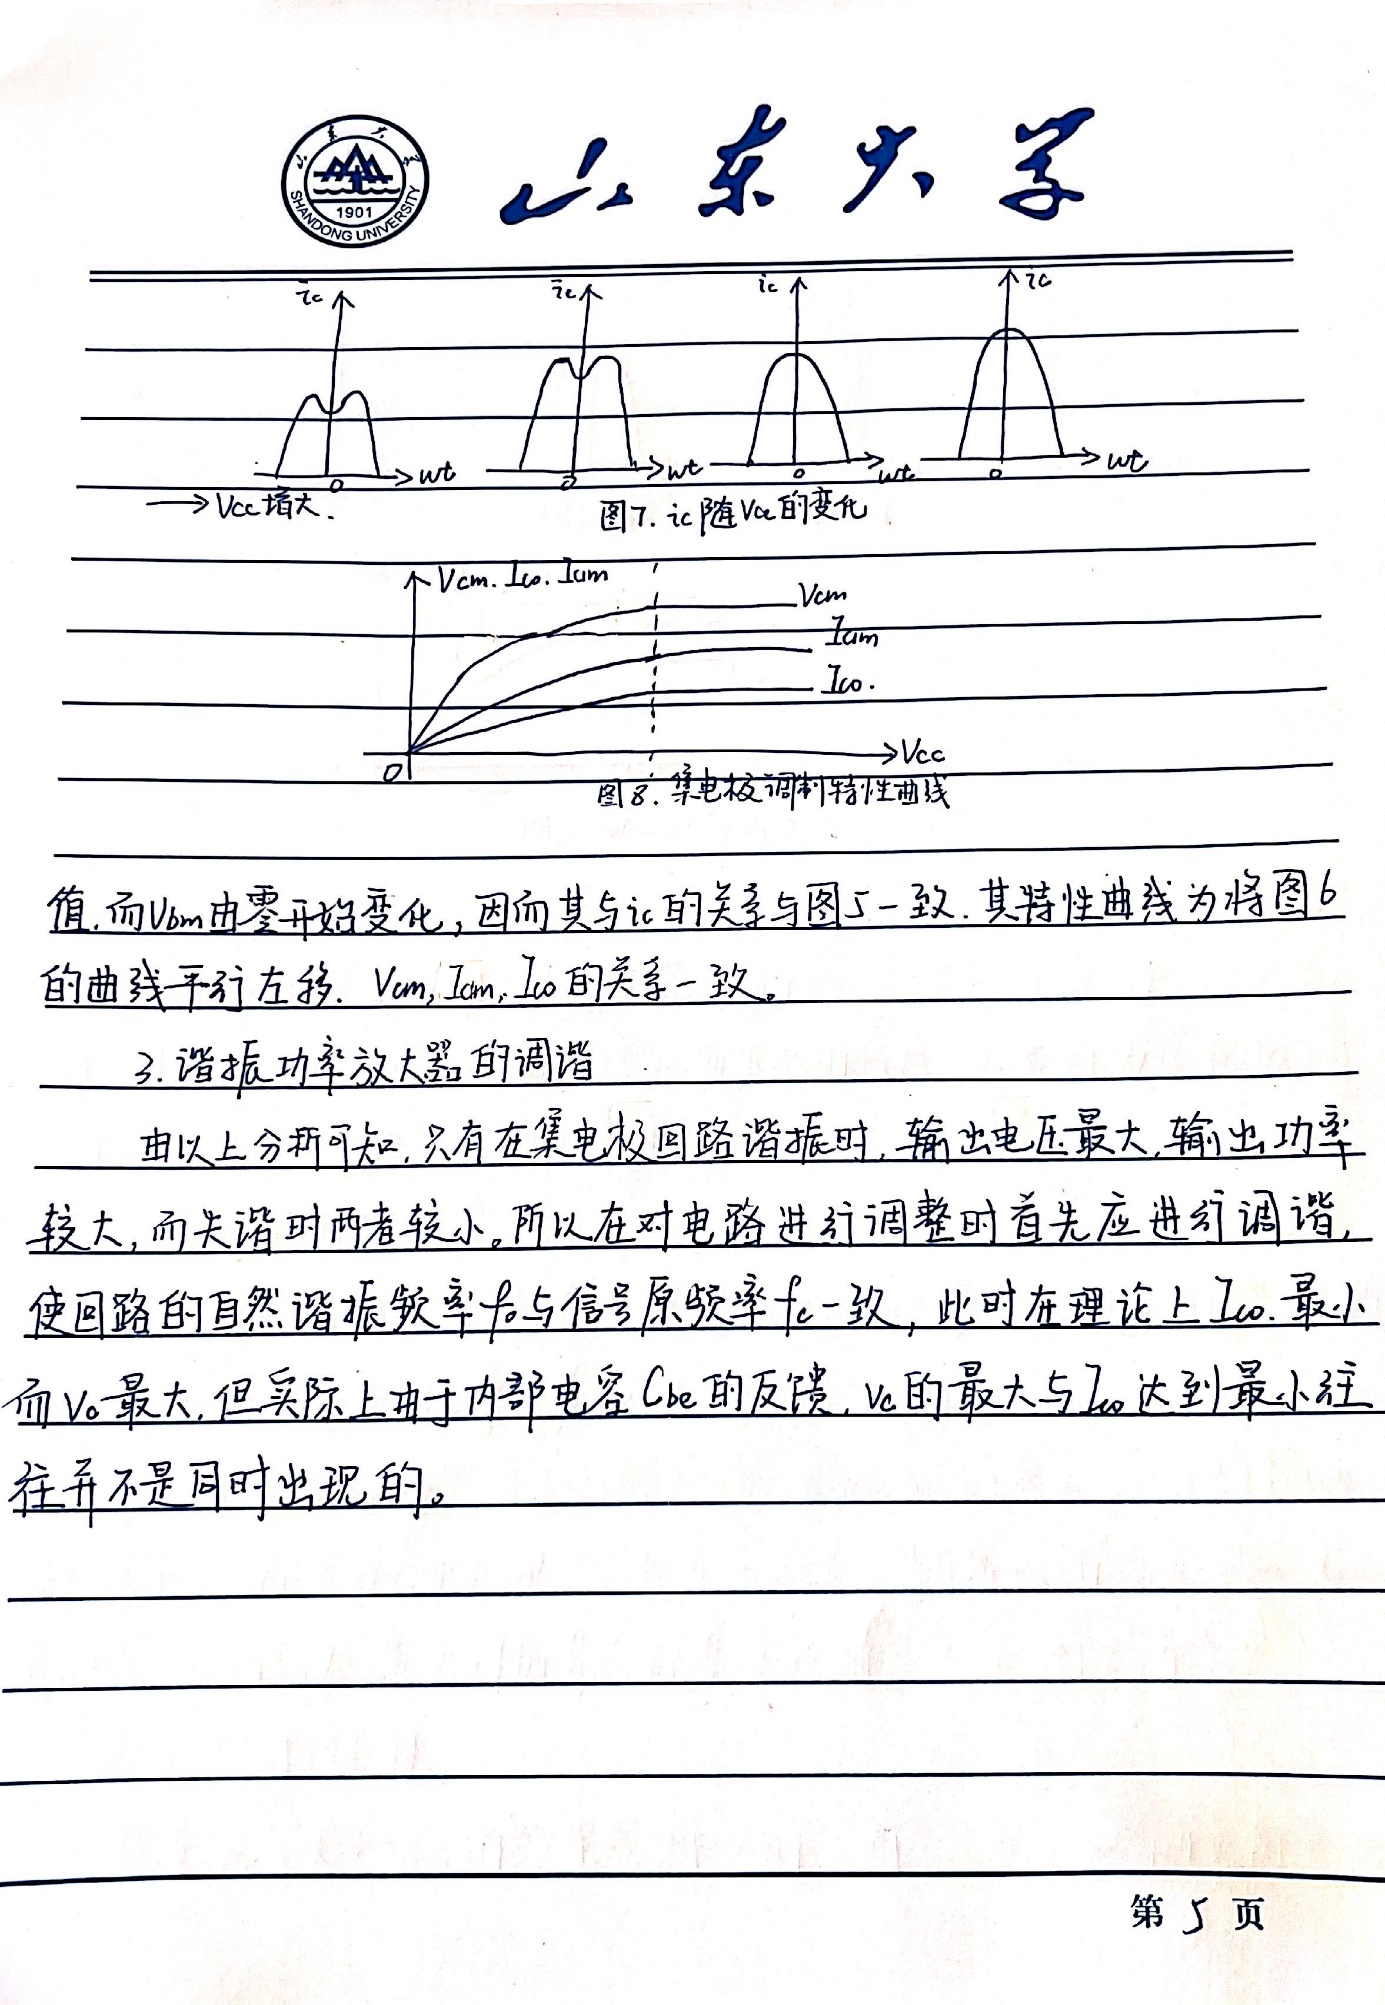 山东大学
SHANDONG UNIVERSITY
1901
ic ic ic ic
0 wt 0 wt 0 wt 0 wt
→Vcc增大.
图7. ic随Vcc的变化
Vcm. Ico. Icm
Vcm
Icm
Ico.
0 Vcc
图8. 集电极调制特性曲线
值.而Vbm由零开始变化,因而其与ic的关系与图5一致.其特性曲线为将图6
的曲线平行左移. Vcm, Icm, Ico的关系一致。
3.谐振功率放大器的调谐
由以上分析可知,只有在集电极回路谐振时,输出电压最大,输出功率
较大,而失谐时两者较小。所以在对电路进行调整时首先应进行调谐,
使回路的自然谐振频率fo与信号原频率fc一致,此时在理论上Ico.最小
而Vo最大,但实际上由于内部电容Cbe的反馈,Vc的最大与Ico达到最小往
往并不是同时出现的。
第5页